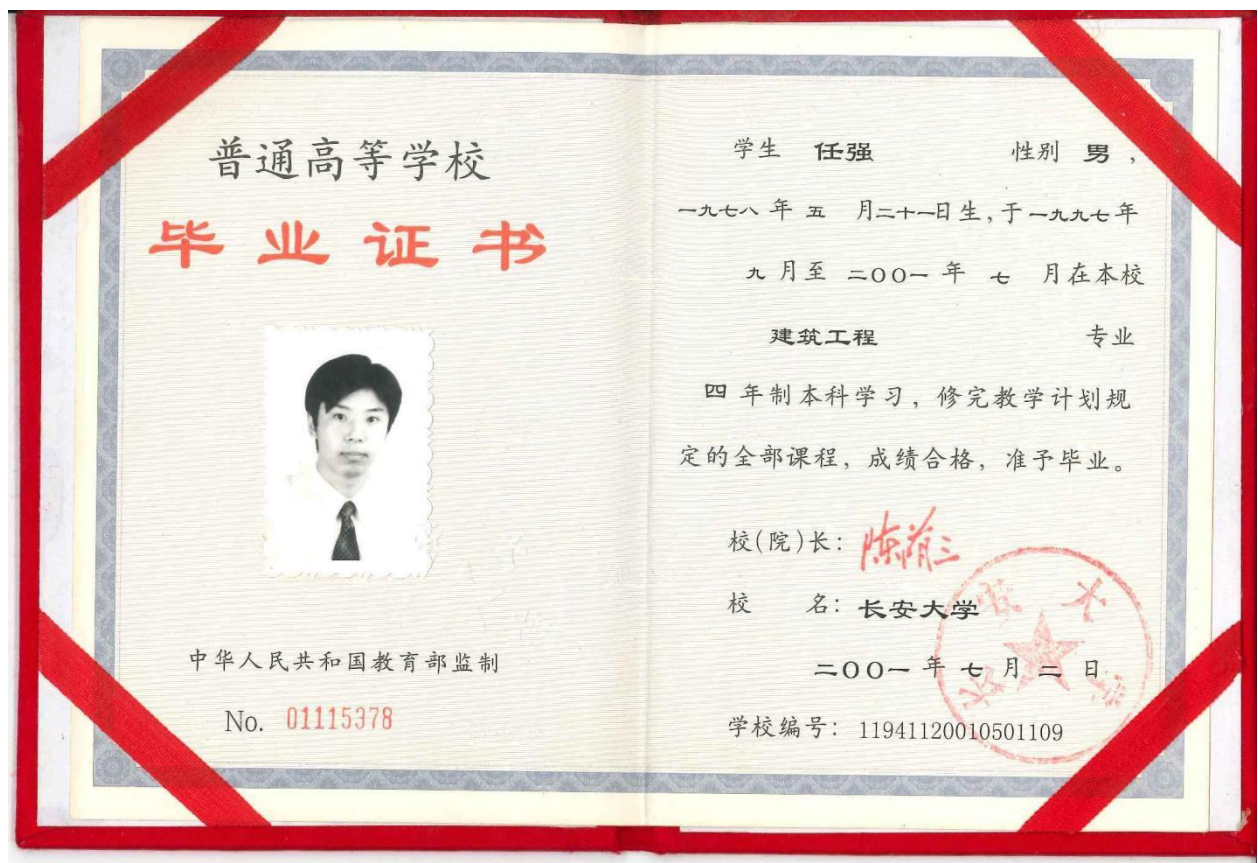 普通高等学校
毕业证书
中华人民共和国教育部监制
No. 01115378
学生 任强 性别 男，
一九七八年 五 月二十一日生，于一九九七年
九月至 二〇〇一 年 七 月在本校
建筑工程 专业
四年制本科学习，修完教学计划规
定的全部课程，成绩合格，准予毕业。
校(院)长：
校 名：长安大学
二〇〇一年七月二日
学校编号：11941120010501109
长安大学